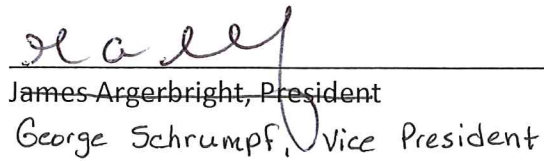 James Argerbright, President
George Schrumpf, Vice President